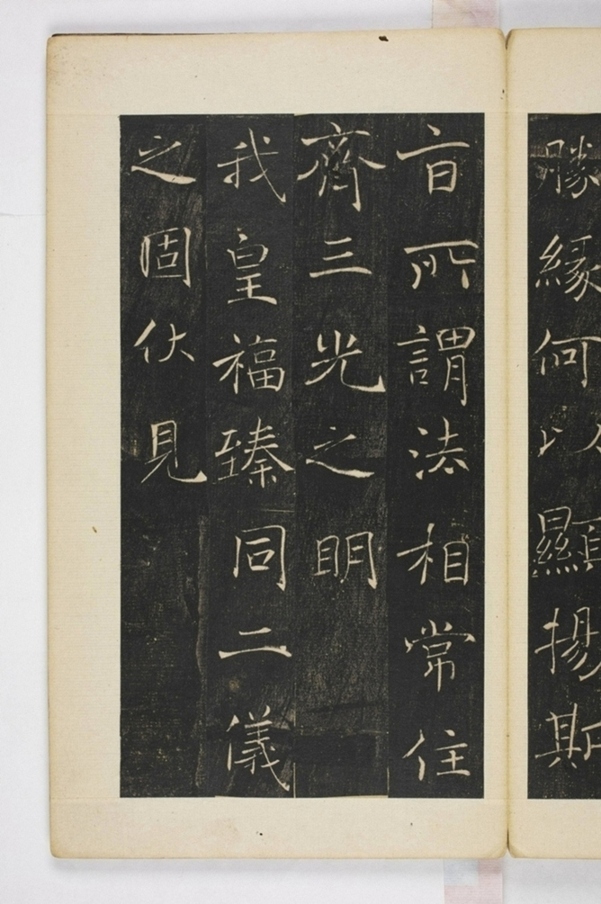 勝緣何以顯揚斯
㫖所謂法相常住
齊三光之明
我皇福臻同二儀
之固伏見